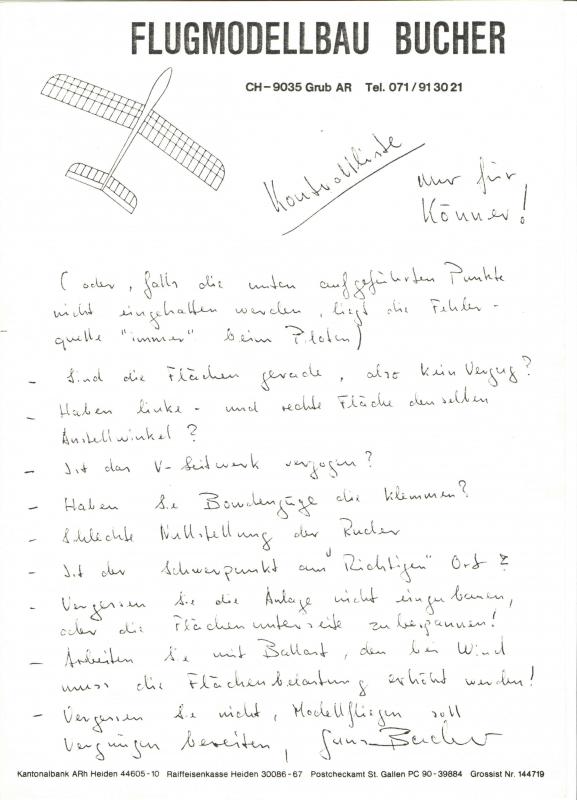 FLUGMODELLBAU BUCHER
CH-9035 Grub AR Tel. 071/91 30 21
Kontrolliste
nur für
Könner!
(oder, falls die unten aufgeführten Punkte
nicht eingehalten werden, liegt die Fehler-
quelle "immer" beim Piloten)
- Sind die Flächen gerade, also kein Verzug?
- Haben linke- und rechte Fläche denselben
Anstellwinkel?
- Ist das V-Leitwerk verzogen?
- Haben Sie Bowdenzüge die klemmen?
- Schlechte Nullstellung der Ruder
- Ist der Schwerpunkt am "Richtigen" Ort?
- Vergessen Sie die Anlage nicht einzubauen,
oder die Flächenunterseite zu bespannen!
- Arbeiten Sie mit Ballast, den bei Wind
muss die Flächenbelastung erhöht werden!
- Vergessen Sie nicht, Modellfliegen soll
Vergnügen bereiten, Bucher
Kantonalbank ARh Heiden 44605-10 Raiffeisenkasse Heiden 30086-67 Postcheckamt St. Gallen PC 90-39884 Grossist Nr. 144719